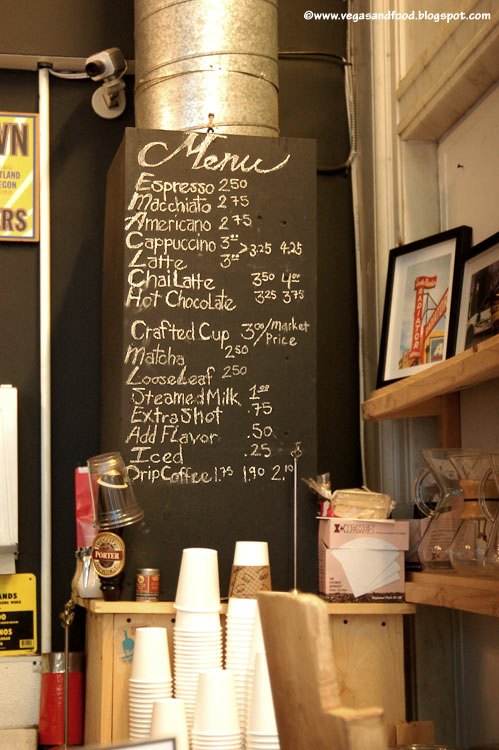 ©www.vegasandfood.blogspot.com
Menu
Espresso 2.50
Macchiato 2.75
Americano 2.75
Cappuccino 3.00 > 3.25 4.25
Latte 3.00
Chai Latte 3.50 4.00
Hot Chocolate 3.25 3.75
Crafted Cup 3.00/Market Price
Matcha 2.50
Looseleaf 2.50
Steamed Milk 1.00
Extra Shot .75
Add Flavor .50
Iced .25
Drip Coffee 1.75 1.90 2.10
WN
TLAND
EGON
ERS
PORTER
CHEMEX
RADIATOR